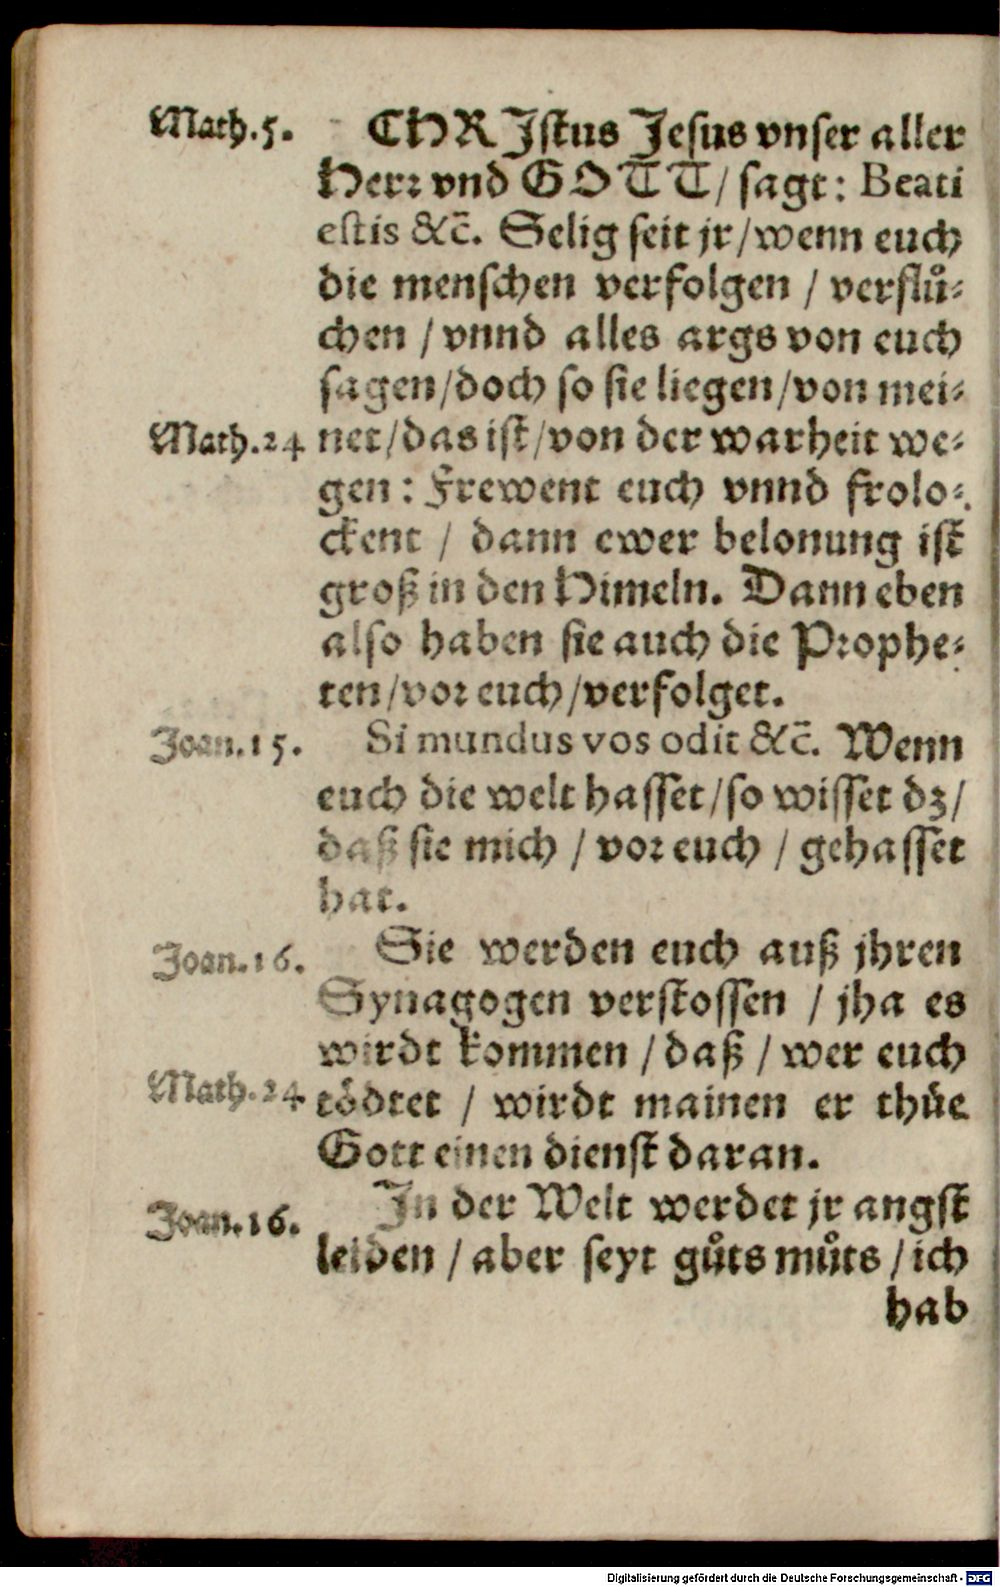 Math.5. CHRIstus Jesus vnser aller
Herr vnd GOTT/ sagt: Beati
estis &c̄. Selig seit jr/wenn euch
die menschen verfolgen / verflů-
chen / vnnd alles args von euch
sagen/doch so sie liegen/von mei-
Math.24 net/das ist/von der warheit we-
gen: Frewent euch vnnd frolo-
ckent / dann ewer belonung ist
groß in den Himeln. Dann eben
also haben sie auch die Prophe-
ten/vor euch/verfolget.
Joan.15. Si mundus vos odit &c̄. Wenn
euch die welt hasset/so wisset dz/
daß sie mich / vor euch / gehasset
hat.
Joan.16. Sie werden euch auß jhren
Synagogen verstossen / jha es
wirdt kommen / daß / wer euch
Math.24 tödtet / wirdt mainen er thůe
Gott einen dienst daran.
Joan.16. In der Welt werdet jr angst
leiden / aber seyt gůts můts / ich
hab
Digitalisierung gefördert durch die Deutsche Forschungsgemeinschaft - DFG